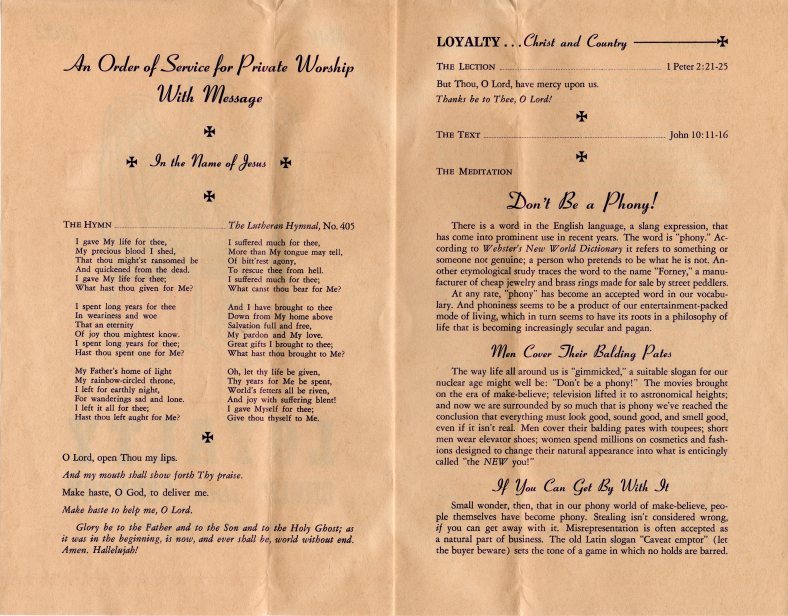 An Order of Service for Private Worship
With Message
In the Name of Jesus
THE HYMN The Lutheran Hymnal, No. 405
I gave My life for thee,
My precious blood I shed,
That thou might'st ransomed be
And quickened from the dead.
I gave My life for thee;
What hast thou given for Me?
I spent long years for thee
In weariness and woe
That an eternity
Of joy thou mightest know.
I spent long years for thee;
Hast thou spent one for Me?
My Father's home of light
My rainbow-circled throne,
I left for earthly night,
For wanderings sad and lone.
I left it all for thee;
Hast thou left aught for Me?
I suffered much for thee,
More than My tongue may tell,
Of bitt'rest agony,
To rescue thee from hell.
I suffered much for thee;
What canst thou bear for Me?
And I have brought to thee
Down from My home above
Salvation full and free,
My pardon and My love.
Great gifts I brought to thee;
What hast thou brought to Me?
Oh, let thy life be given,
Thy years for Me be spent,
World's fetters all be riven,
And joy with suffering blent!
I gave Myself for thee;
Give thou thyself to Me.
O Lord, open Thou my lips.
And my mouth shall show forth Thy praise.
Make haste, O God, to deliver me.
Make haste to help me, O Lord.
Glory be to the Father and to the Son and to the Holy Ghost; as
it was in the beginning, is now, and ever shall be, world without end.
Amen. Hallelujah!
LOYALTY . . . Christ and Country
THE LECTION 1 Peter 2:21-25
But Thou, O Lord, have mercy upon us.
Thanks be to Thee, O Lord!
THE TEXT John 10:11-16
THE MEDITATION
Don't Be a Phony!
There is a word in the English language, a slang expression, that
has come into prominent use in recent years. The word is "phony." Ac-
cording to Webster's New World Dictionary it refers to something or
someone not genuine; a person who pretends to be what he is not. An-
other etymological study traces the word to the name "Forney," a manu-
facturer of cheap jewelry and brass rings made for sale by street peddlers.
At any rate, "phony" has become an accepted word in our vocabu-
lary. And phoniness seems to be a product of our entertainment-packed
mode of living, which in turn seems to have its roots in a philosophy of
life that is becoming increasingly secular and pagan.
Men Cover Their Balding Pates
The way life all around us is "gimmicked," a suitable slogan for our
nuclear age might well be: "Don't be a phony!" The movies brought
on the era of make-believe; television lifted it to astronomical heights;
and now we are surrounded by so much that is phony we've reached the
conclusion that everything must look good, sound good, and smell good,
even if it isn't real. Men cover their balding pates with toupees; short
men wear elevator shoes; women spend millions on cosmetics and fash-
ions designed to change their natural appearance into what is enticingly
called "the NEW you!"
If You Can Get By With It
Small wonder, then, that in our phony world of make-believe, peo-
ple themselves have become phony. Stealing isn't considered wrong,
if you can get away with it. Misrepresentation is often accepted as
a natural part of business. The old Latin slogan "Caveat emptor" (let
the buyer beware) sets the tone of a game in which no holds are barred.